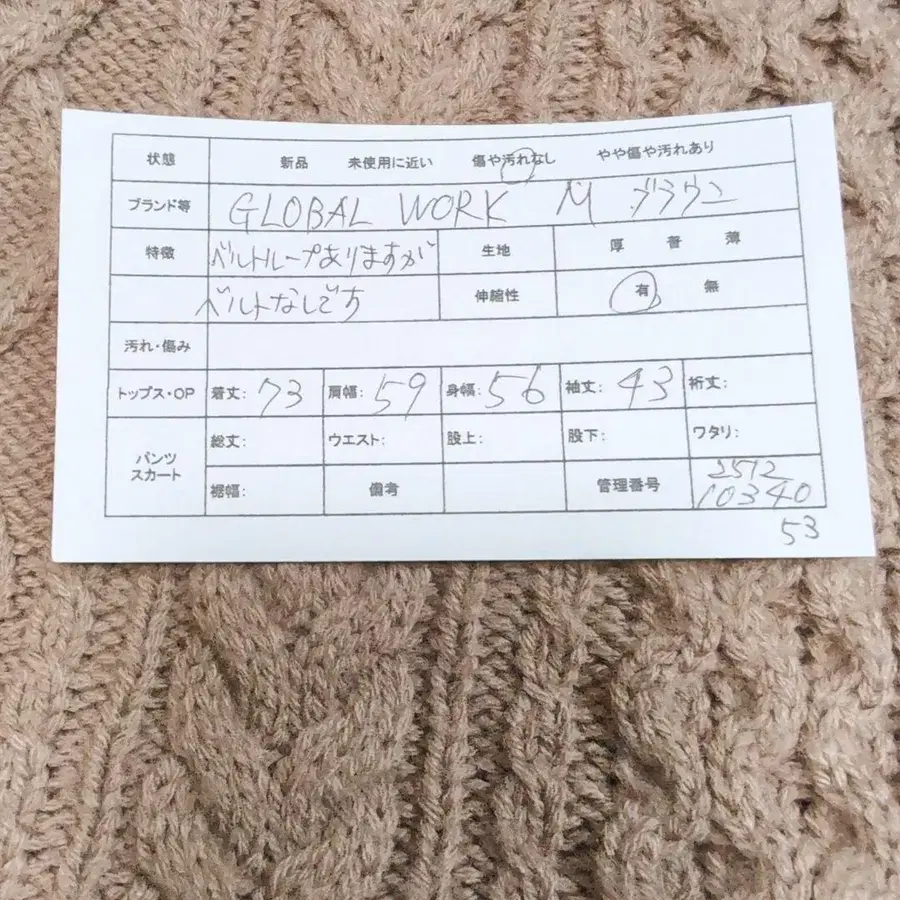 状態 新品 未使用に近い 傷や汚れなし やや傷や汚れあり
ブランド等 GLOBAL WORK M ブラウン
特徴 ベルトループありますが 生地 厚 普 薄
ベルトなしです 伸縮性 有 無
汚れ・傷み
トップス・OP 着丈: 73 肩幅: 59 身幅: 56 袖丈: 43 裄丈:
パンツ スカート 総丈: ウエスト: 股上: 股下: ワタリ:
裾幅: 備考 管理番号 2512
10340
53